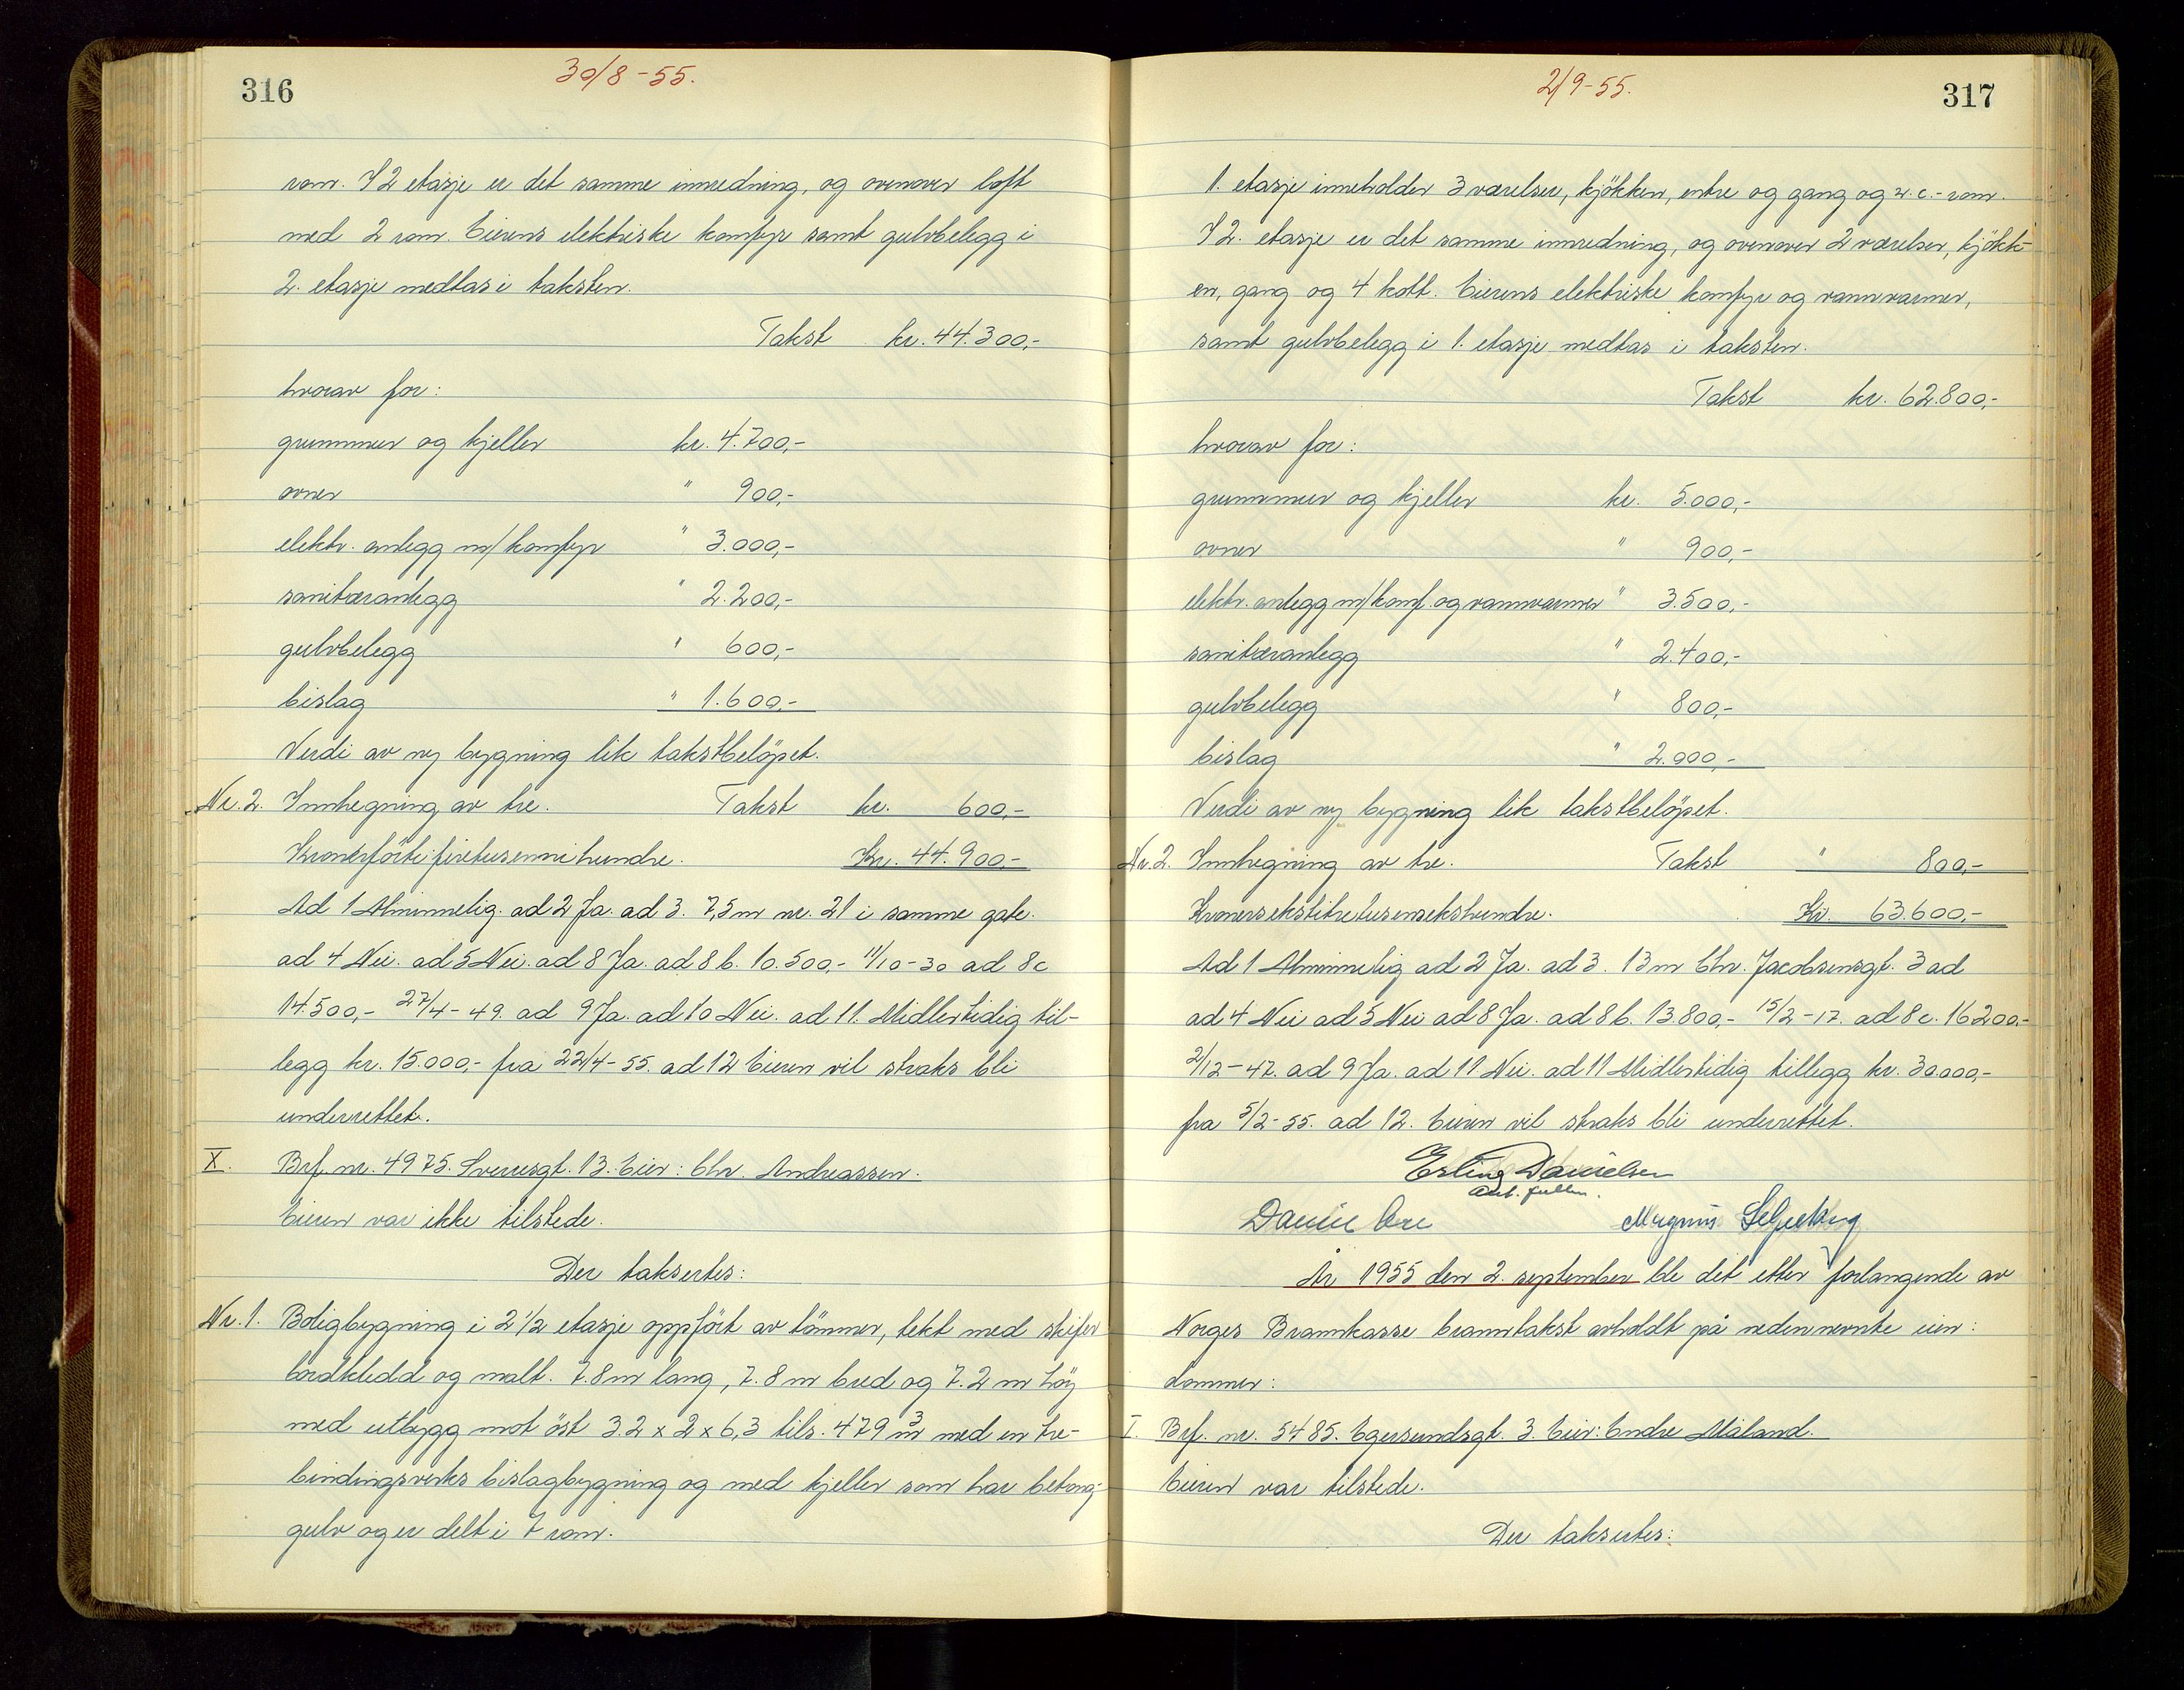 316
30/8-55.
rom. I 2 etasje er det samme innredning, og ovenover loft
med 2 rom. Eierens elektriske komfyr samt gulvbelegg i
2. etasje medtas i taksten.
Takst kr. 44.300,-
hvorav for:
grunnmur og kjeller kr. 4.700,-
ovner " 900,-
elektr. anlegg m/komfyr " 3.000,-
sanitæranlegg " 2.200,-
gulvbelegg " 600,-
bislag " 1.600,-
Verdi av ny bygning lik takstbelöpet.
Nr. 2. Innhegning av tre. Takst kr. 600,-
Kronerförtifiretusennihundre. Kr. 44.900,-
Ad 1 Alminnelig. ad 2 Ja. ad 3. 7,5 m nr. 21 i samme gate.
ad 4 Nei. ad 5 Nei. ad 8 Ja. ad 8 b. 10.500,- 11/10-30 ad 8c
14.500,- 27/4-49. ad 9 Ja. ad 10 Nei. ad 11. Midlertidig til-
legg kr. 15.000,- fra 22/4-55. ad 12 Eieren vil straks bli
underrettet.
X. Brf. nr. 4975. Sverresgt. 13. Eier: Chr. Andreassen.
Eieren var ikke tilstede.
Der taksertes:
Nr. 1. Boligbygning i 2 1/2 etasje oppfört av tömmer, tekt med skifer
bordkledd og malt. 7.8 m lang, 7.8 m bred og 7.2 m höy
med utbygg mot öst 3.2 x 2 x 6,3 tils. 479 m3 med en tre-
bindingsverks bislagbygning og med kjeller som har betong-
gulv og er delt i 7 rom.
2/9-55.
317
1. etasje inneholder 3 værelser, kjökken, entre og gang og w.c.-rom.
I 2. etasje er det samme innredning, og ovenover 2 værelser, kjökk-
en, gang og 4 kott. Eierens elektriske komfyr og vannvarmer,
samt gulvbelegg i 1. etasje medtas i taksten.
Takst kr. 62.800,-
hvorav for:
grunnmur og kjeller kr. 5.000,-
ovner " 900,-
elektr. anlegg m/komf. og vannvarmer " 3.500,-
sanitæranlegg " 2.400,-
gulvbelegg " 800,-
bislag " 2.000,-
Verdi av ny bygning lik takstbelöpet.
Nr. 2. Innhegning av tre. Takst " 800,-
Kronersekstitretusensekshundre. Kr. 63.600,-
Ad 1 Alminnelig ad 2 Ja. ad 3. 13 m Chr. Jacobsensgt. 3 ad
ad 4 Nei ad 5 Nei ad 8 Ja. ad 8 b. 13.800,- 15/2-17. ad 8 c. 16200.-
2/12-47. ad 9 Ja. ad 11 Nei. ad 11 Midlertidig tillegg kr. 30.000,-
fra 5/2-55. ad 12. Eieren vil straks bli underrettet.
Erling Danielsen
Daniel
Magnus
År 1955 den 2. september ble det etter forlangende av
Norges Brannkasse branntakst avholdt på nedennevnte eien:
dommer:
I. Brf. nr. 5485. Egersundsgt. 3. Eier: Endre Måland.
Eieren var tilstede.
Der taksertes: